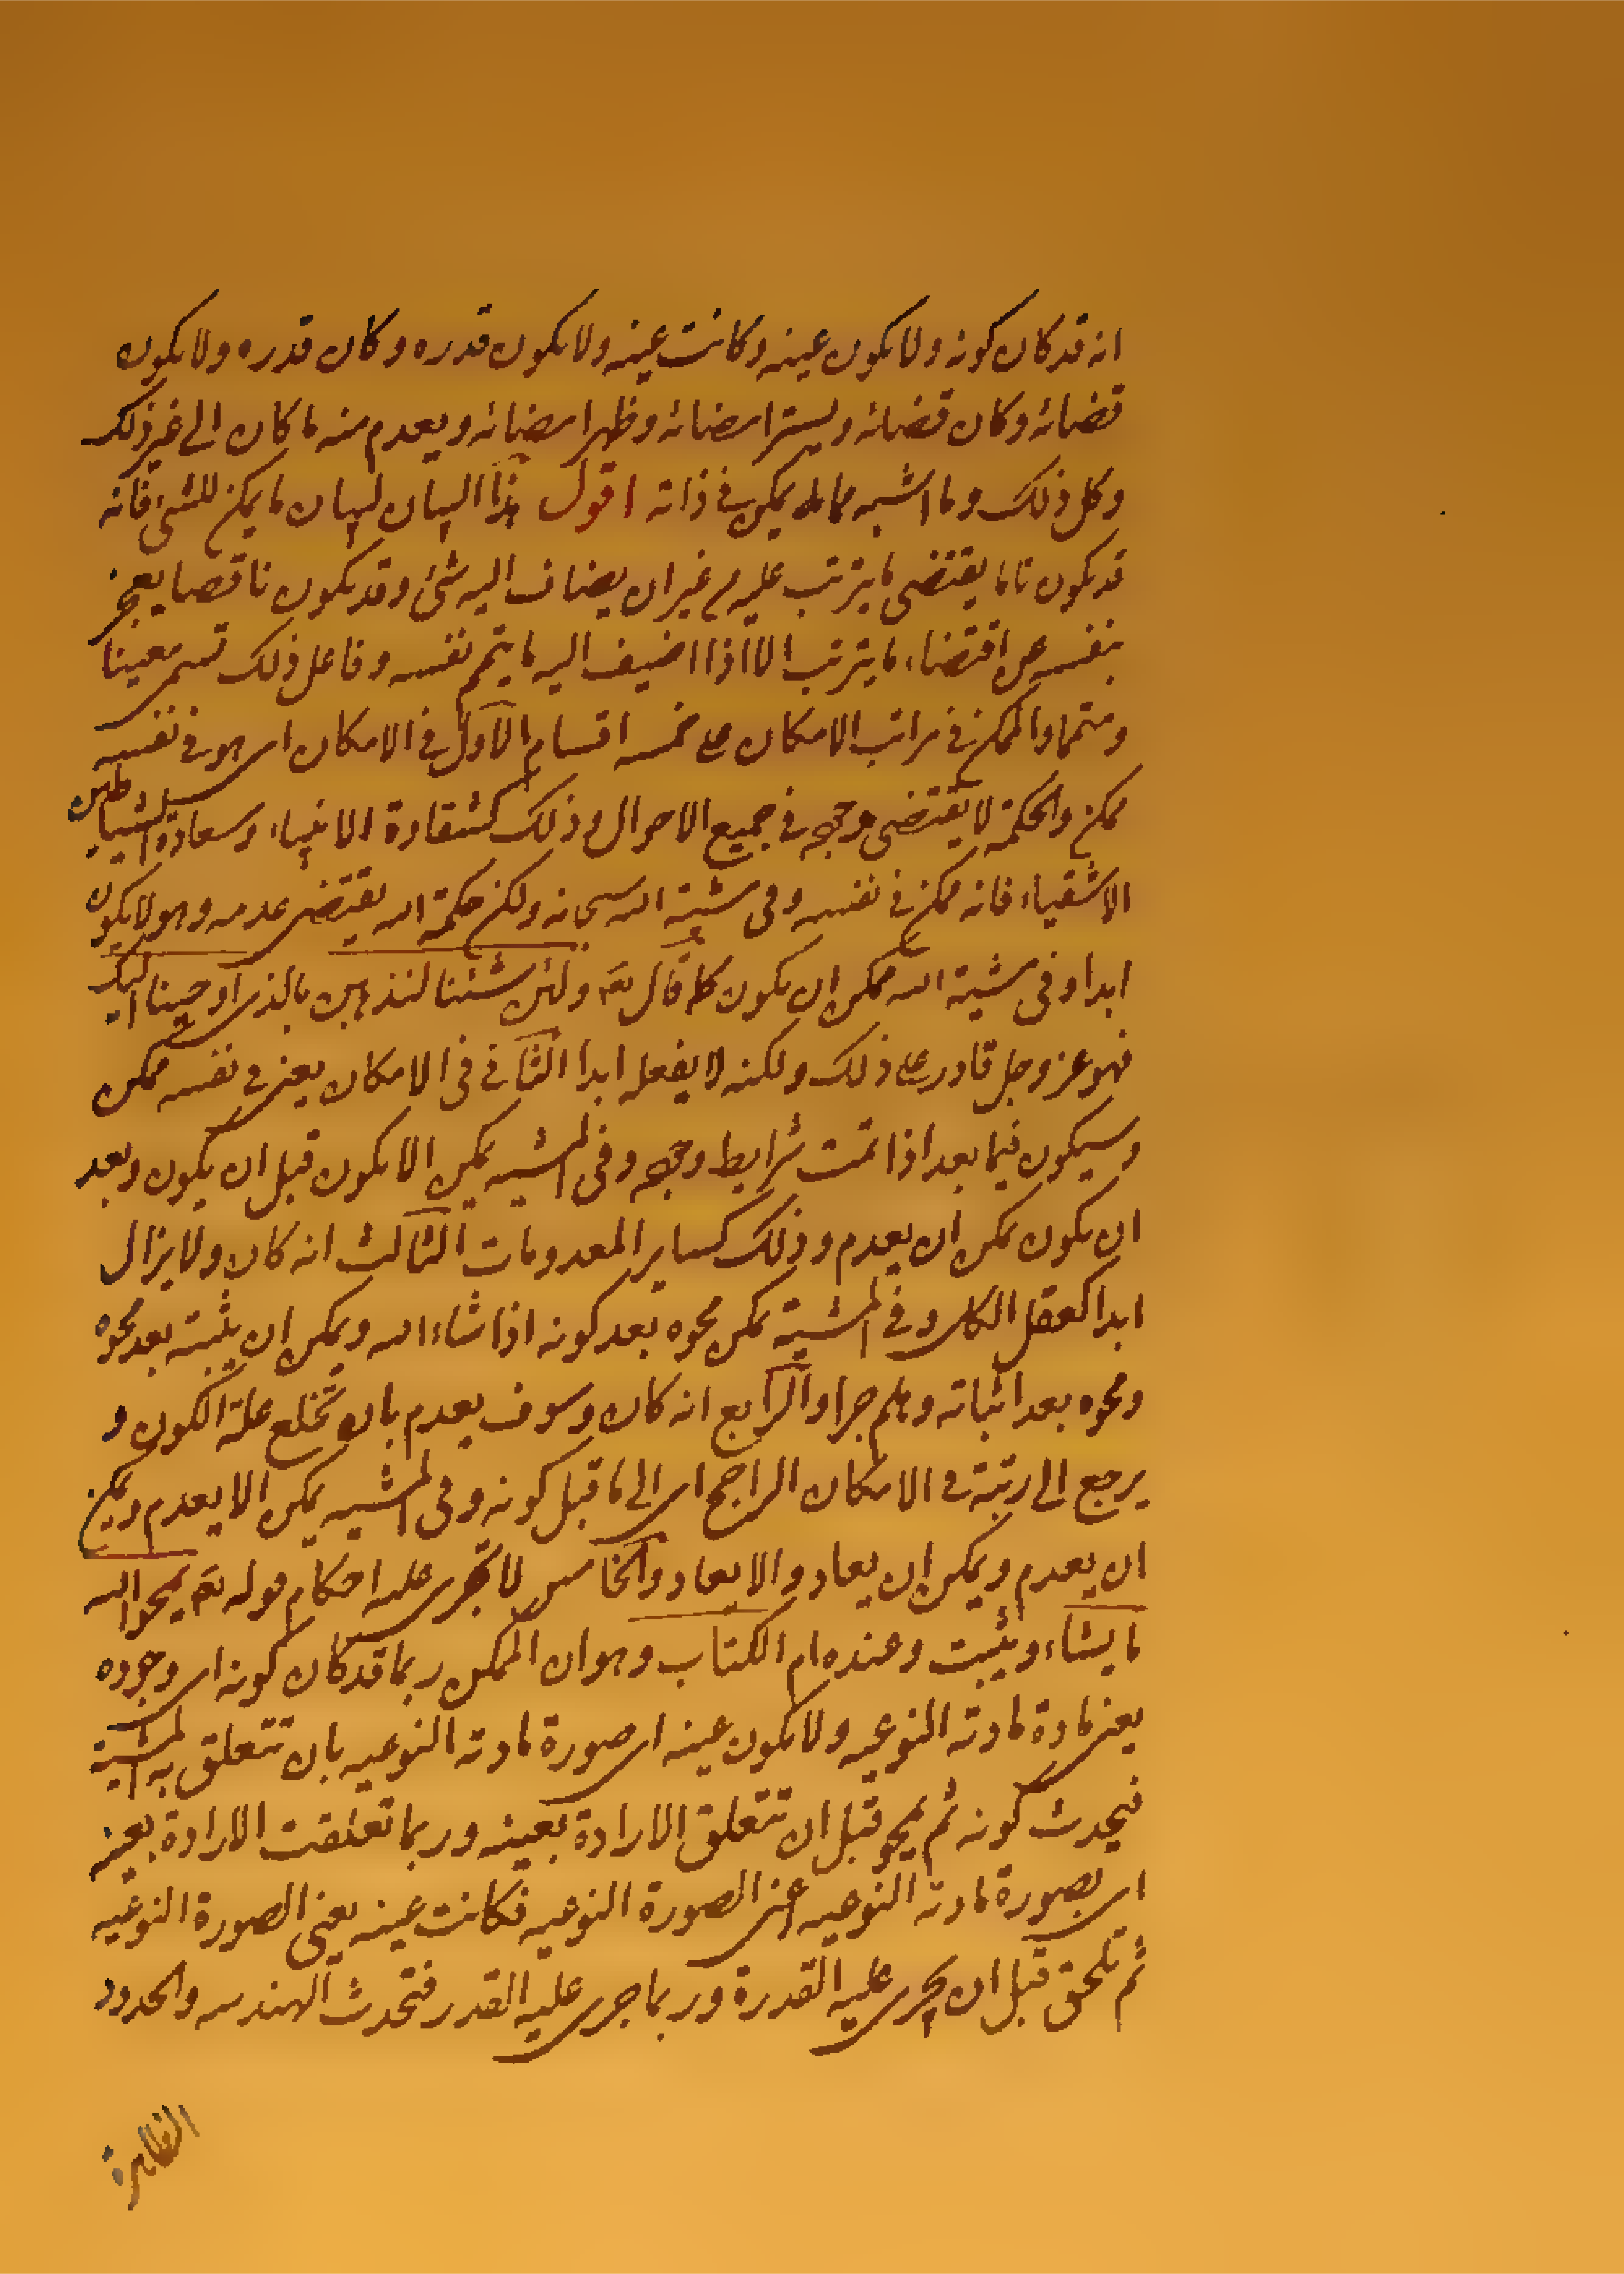 انه قد كان كونه ولا يكون عينه وكانت عينه ولا يكون قدره وكان قدره ولا يكون
قضائه وكان قضائه وليستر امضائه وظهر امضائه ويعدم منه ما كان الى غير ذلك
وكل ذلك وما اشبه مما له يمكن فى ذاته اقول هذا البيان لبيان ما يمكن للشئ فانه
قد يكون تاما يقتضى ما يترتب عليه من غير ان يضاف اليه شئ وقد يكون ناقصا يعجز
بنفسه عن اقتضاء ما يترتب الا اذا اضيف اليه ما يتم نفسه وفاعل ذلك تسمى معينا
ومتمما والممكن فى مراتب الامكان على خمسه اقسام الاول فى الامكان اى هو فى نفسه
ممكن والحكمة لا يقتضى وجوده فى جميع الاحوال وذلك كشقاوة الانبياء وسعادة الشياطين
الاشقياء فانه ممكن فى نفسه وفى مشية الله سبحانه ولكن حكمة الله يقتضى عدمه وهو لا يكون
ابدا وفى مشية الله ممكن ان يكون كما قال تع ولئن شئنا لنذهبن بالذى اوحينا اليك
فهو عز وجل قادر على ذلك ولكنه لا يفعله ابدا الثانى فى الامكان يعنى فى نفسه ممكن
وسيكون فيما بعد اذا تمت شرايط وجوده وفى المشيه يمكن الا يكون قبل ان يكون وبعد
ان يكون يمكن ان يعدم وذلك كساير المعدومات الثالث انه كان ولا يزال
ابدا كعقل الكل وفى المشية يمكن محوه بعد كونه اذا شاء الله ويمكن ان يثبته بعد محوه
ومحوه بعد اثباته وهلم جرا والرابع انه كان وسوف يعدم بان تخلع علة الكون و
يرجع الى رتبة فى الامكان الراجح اى الى ما قبل كونه وفى المشيه يمكن الا يعدم ويمكن
ان يعدم ويمكن ان يعاد والا يعاد والخامس لا تجرى عليه احكام قوله تع يمحوا الله
ما يشاء ويثبت وعنده ام الكتاب وهو ان الممكن ربما قد كان كونه اى وجوده
يعنى مادة مادته النوعيه ولا يكون عينه اى صورة مادته النوعيه بان تتعلق به المشية
فيحدث كونه ثم يمحو قبل ان تتعلق الارادة بعينه وربما تعلقت الارادة بعينه
اى بصورة مادته النوعيه اعنى الصورة النوعيه فكانت عينه يعنى الصورة النوعيه
ثم تلحق قبل ان يجرى عليه القدرة وربما جرى عليه القدر فتحدث الهندسه والحدود
الظاهرة